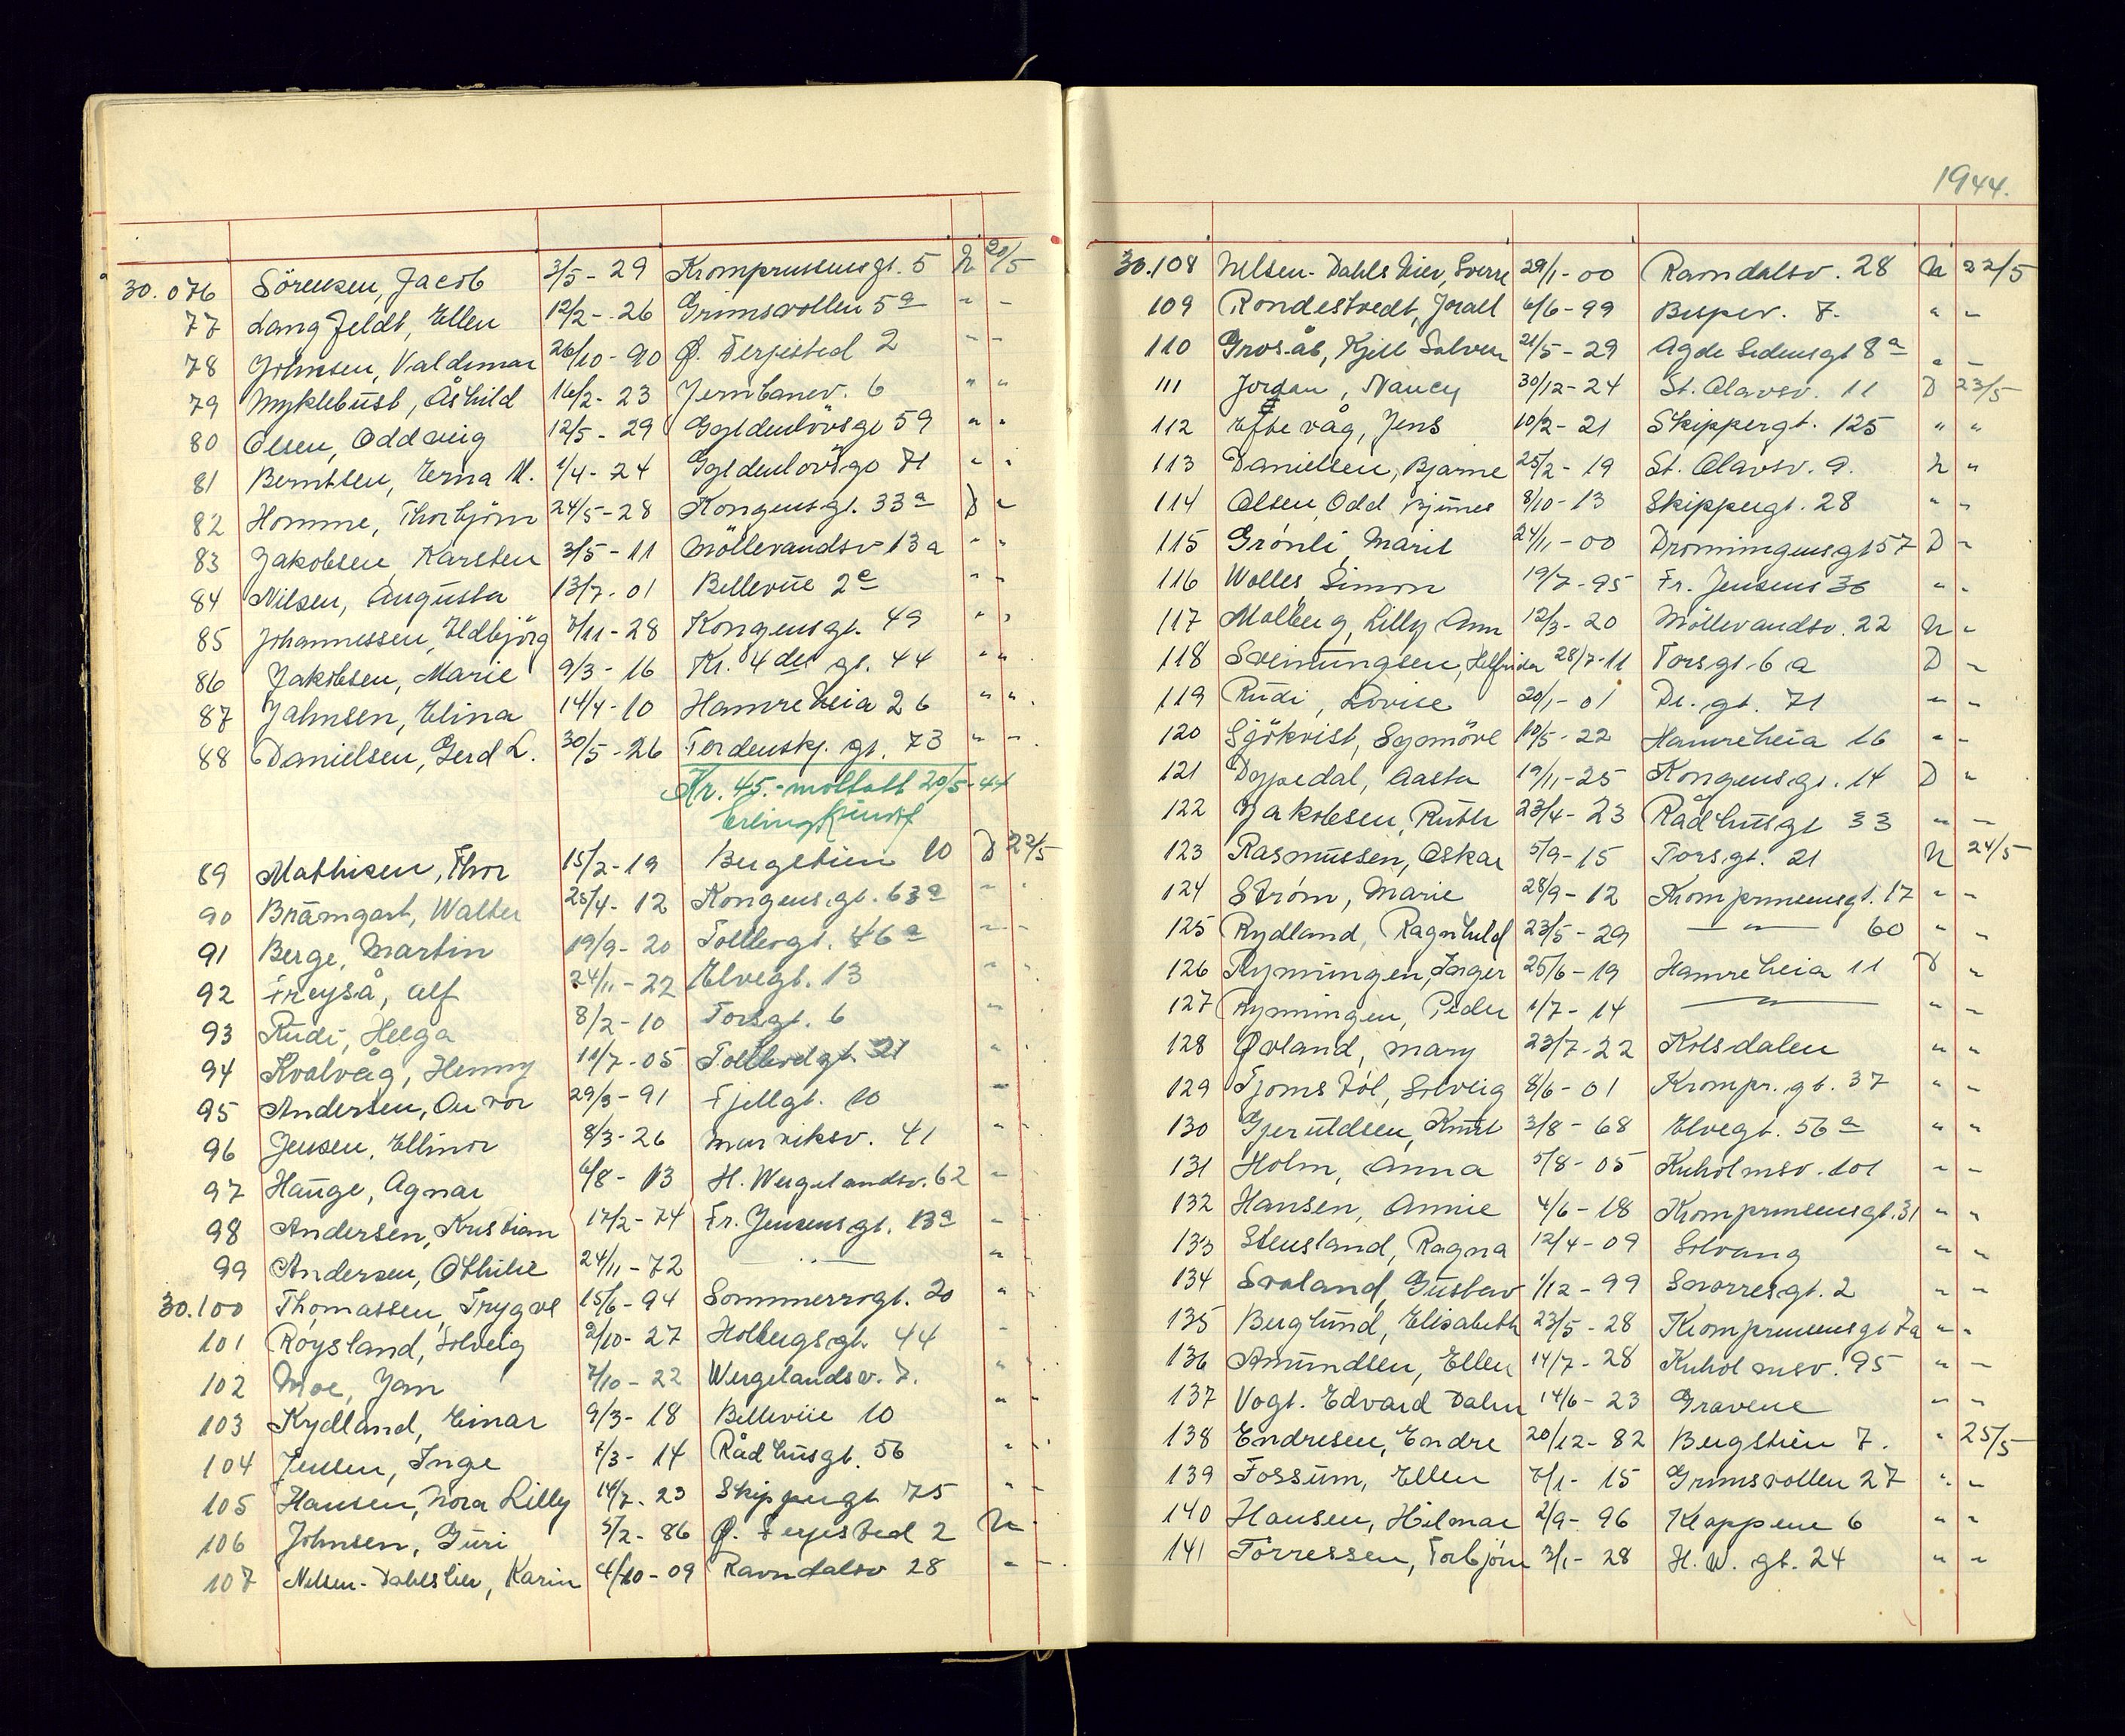 30.076 Sörensen, Jacob 3/5 - 29 Kronprinsensgt. 5 N 20/5
77 Langfeldt, Ellen 12/2 - 26 Grimsvollen 5a " -
78 Johnsen, Valdemar 26/10 - 90 Ø. Ferjested 2 - -
79 Myklebust, Åshild 16/2 - 23 Jernbanev. 6 " "
80 Olsen, Oddveig 12/5 - 29 Gyldenlövsgt 59 " "
81 Berntsen, Erna M. 1/4 - 24 Gyldenlövsgt 71 " "
82 Homme, Thorbjörn 24/5 - 28 Kongensgt. 33a D "
83 Jakobsen, Karsten 3/5 - 11 Möllevandsv 13a " "
84 Nilsen, Augusta 13/7 - 01 Bellevue 2c " "
85 Johannessen, Eldbjörg 7/11 - 28 Kongensgt. 49 " "
86 Jakobsen, Marie 9/3 - 16 Kr. 4des gt. 44 " "
87 Jahnsen, Elina 14/4 - 10 Hamreheia 26 " "
88 Danielsen, Gerd L. 30/5 - 26 Tordenskj. gt. 73 " "
Kr. 45.- mottatt 20/5-44
Erling
89 Mathisen, Thor 15/2 - 19 Bergstien 10 D 22/5
90 Brämgart, Walter 25/4 - 12 Kongensgt. 63a " "
91 Berge, Martin 19/9 - 20 Tollbogt. 46a " -
92 Frøyså, Alf 24/11 - 22 Elvegt. 13 " "
93 Rudi, Helga 8/2 - 10 Torsgt. 6 "
94 Kvalvåg, Henny 11/7 - 05 Tollbodgt. 21 " "
95 Andersen, Our 29/3 - 91 Fjellgt. 10 "
96 Jensen, Ellinor 8/3 - 26 Marviksv. 41 " "
97 Hauge, Agnar 6/8 - 13 H. Wergelandsv. 62 "
98 Andersen, Kristian 17/2 - 74 Fr. Jensensgt. 13a " "
99 Andersen, Othilie 24/11 - 72 — " — " "
30.100 Thomassen, Trygve 15/6 - 94 Sommerrogt. 20 " "
101 Röysland, Solveig 2/10 - 27 Holbergsgt. 44 "
102 Moe, Jan 7/10 - 22 Wergelandsv. 7. " "
103 Kydland, Einar 9/3 - 18 Bellevue 10 " "
104 Jensen, Inge 7/3 - 14 Rådhusgt. 56 " "
105 Hansen, Nora Lilly 14/7 - 23 Skippergt 75 " "
106 Johnsen, Guri 5/2 - 86 Ø. Ferjested 2 N "
107 Nilsen-Dahlskier, Karin 4/10 - 09 Ravndalsv 28 " -
1944.
30.108 Nilsen-Dahlskier, Sverre 29/1 - 00 Ravndalsv. 28 N 22/5
109 Rondestvedt, Joraell 6/6 - 99 Bispev. 7. " "
110 Grosås, Kjell Salve 21/5 - 29 Agde Sidensgt 8a " -
111 Jordan, Nancy 30/12 - 24 St. Olavsv. 11 D 23/5
112 Eftevåg, Jens 10/2 - 21 Skippergt. 125 " "
113 Danielsen, Bjarne 25/2 - 19 St. Olavsv. 9. N "
114 Olsen, Odd 8/10 - 13 Skippergt. 28 " "
115 Grönli, Marit 24/11 - 00 Dronningensgt 57 D -
116 Wolles, Simon 19/7 - 95 Fr. Jensens 36 " "
117 Molberg, Lilly Ann 12/3 - 20 Möllevandsv. 22 N -
118 Sveinungsen, Helfrida 28/7 - 11 Torsgt. 6 a D -
119 Rudi, Lovise 20/1 - 01 Dr. gt. 71 " "
120 Sjökvist, Synnöve 10/5 - 22 Hamreheia 16 " "
121 Dypedal, Aasta 19/11 - 25 Kongensgt. 14 D "
122 Jakobsen, Ruth 23/4 - 23 Rådhusgt 33 " -
123 Rasmussen, Oskar 5/9 - 15 Torsgt. 21 N 24/5
124 Strøm, Marie 28/9 - 12 Kronprinsensgt. 17 " "
125 Rydland, Ragnhild 23/5 - 29 — " — 60 " "
126 Rymingen, Inger 25/6 - 19 Hamreheia 11 D "
127 Rymingen, Peder 1/7 - 14 — " — " "
128 Øvland, Mary 23/7 - 22 Kolsdalen " "
129 Tjomstöl, Solveig 8/6 - 01 Kronpr. gt. 37 " "
130 Gjeruldsen, Knut 3/8 - 68 Elvegt. 56a " "
131 Holm, Anna 5/8 - 05 Kuholmsv. 101 " "
132 Hansen, Annie 4/6 - 18 Kronprinsensgt. 31 " "
133 Stensland, Ragna 12/4 - 09 Solvang " "
134 Svaland, Gustav 1/12 - 99 Snorresgt. 2 " "
135 Berglund, Elisabeth 23/5 - 28 Kronprinsensgt 7a " "
136 Amundsen, Ellen 14/7 - 28 Kuholmsv. 95 " -
137 Vogt. Edvard Dahn 14/6 - 23 Gravene " "
138 Endresen, Endre 20/12 - 82 Bergstien 7. " 25/5
139 Fossum, Ellen 7/1 - 15 Grimsvollen 27 " "
140 Hansen, Hilmar 2/9 - 96 Kleppene 6 " "
141 Torressen, Torbjörn 3/1 - 28 H. W. gt. 24 " "